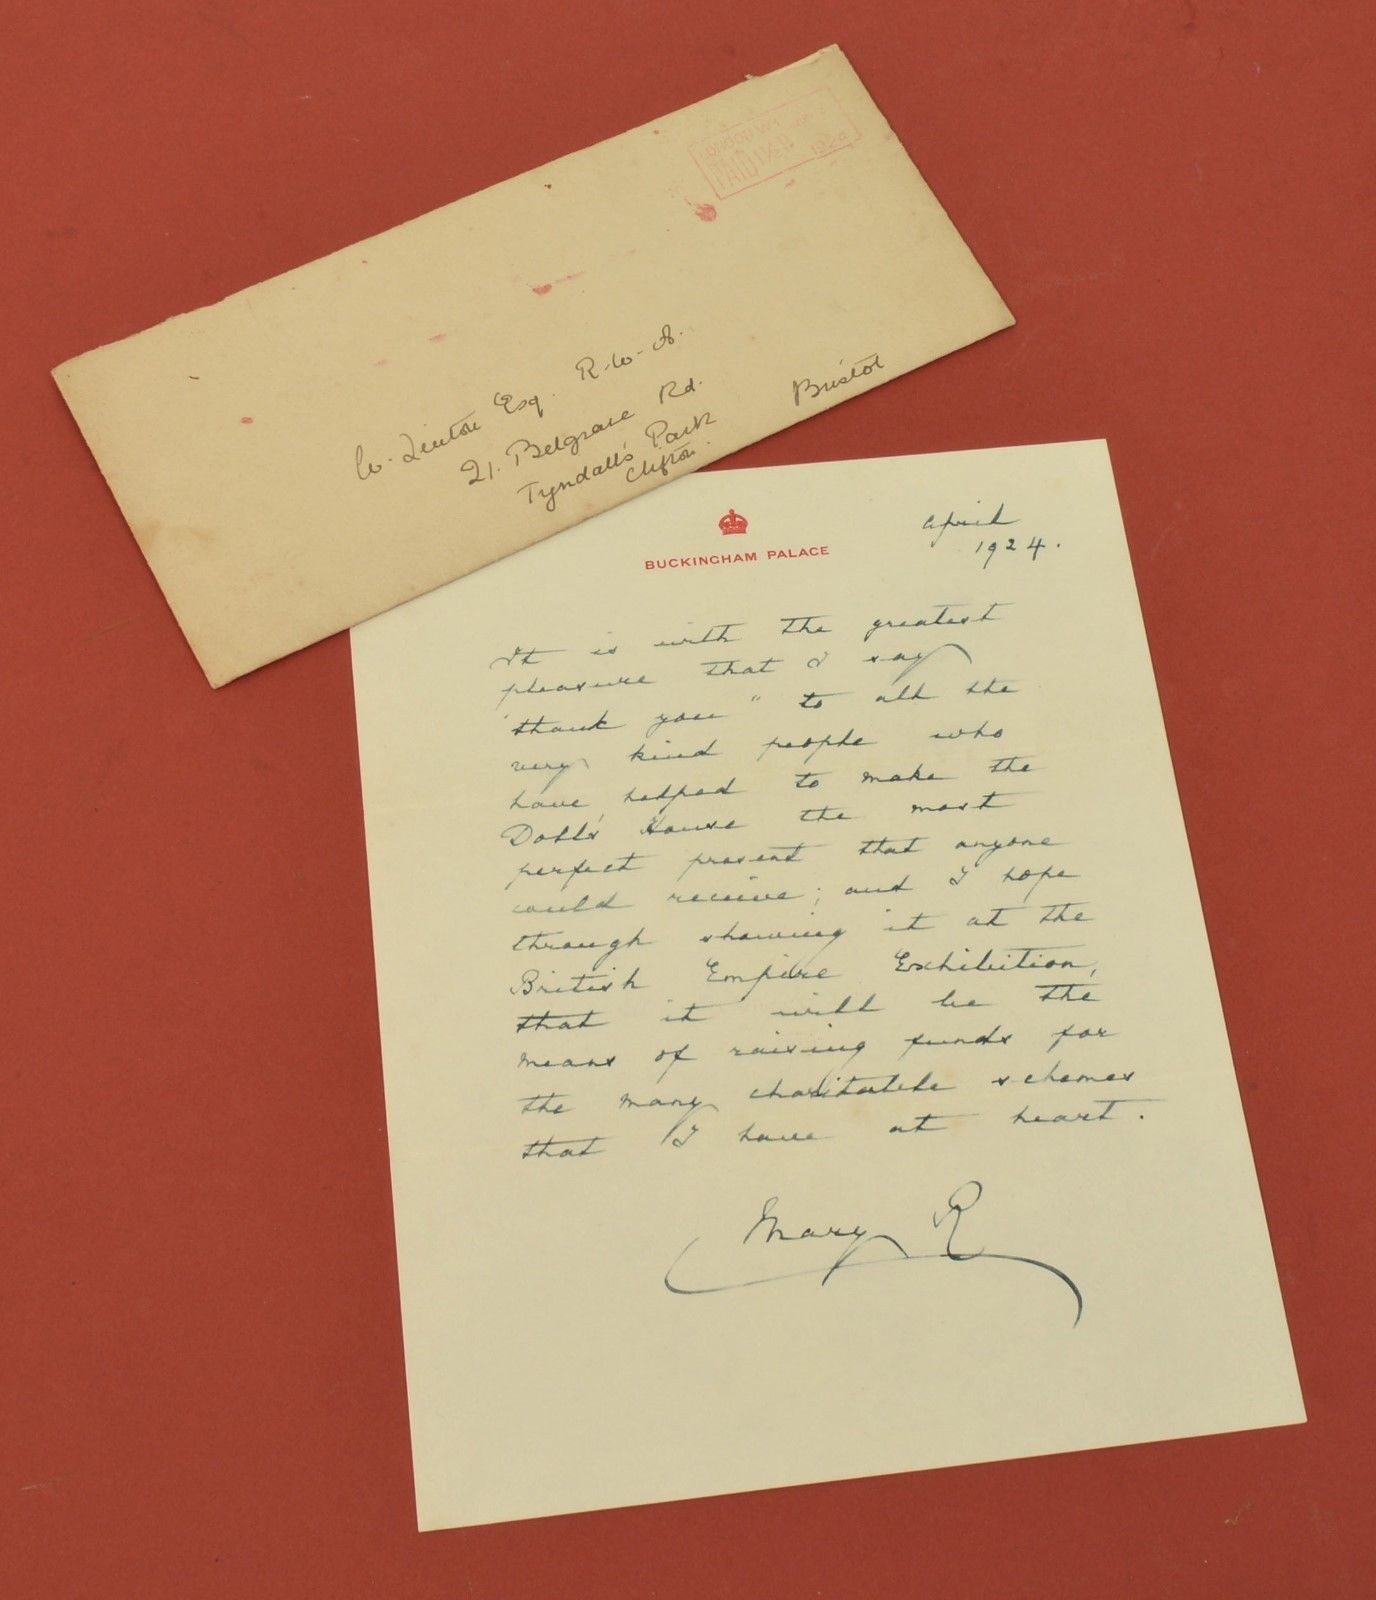 LONDON
PAID 1½D 1924
W. Linton Esq. R.W.A.
21. Belgrave Rd.
Tyndall's Park
Clifton.
Bristol
BUCKINGHAM PALACE
April
1924.
It is with the greatest
pleasure that I say
"thank you" to all the
very kind people who
have helped to make the
Doll's House the most
perfect present that anyone
could receive; and I hope
through showing it at the
British Empire Exhibition,
that it will be the
means of raising funds for
the many charitable schemes
that I have at heart.
Mary R